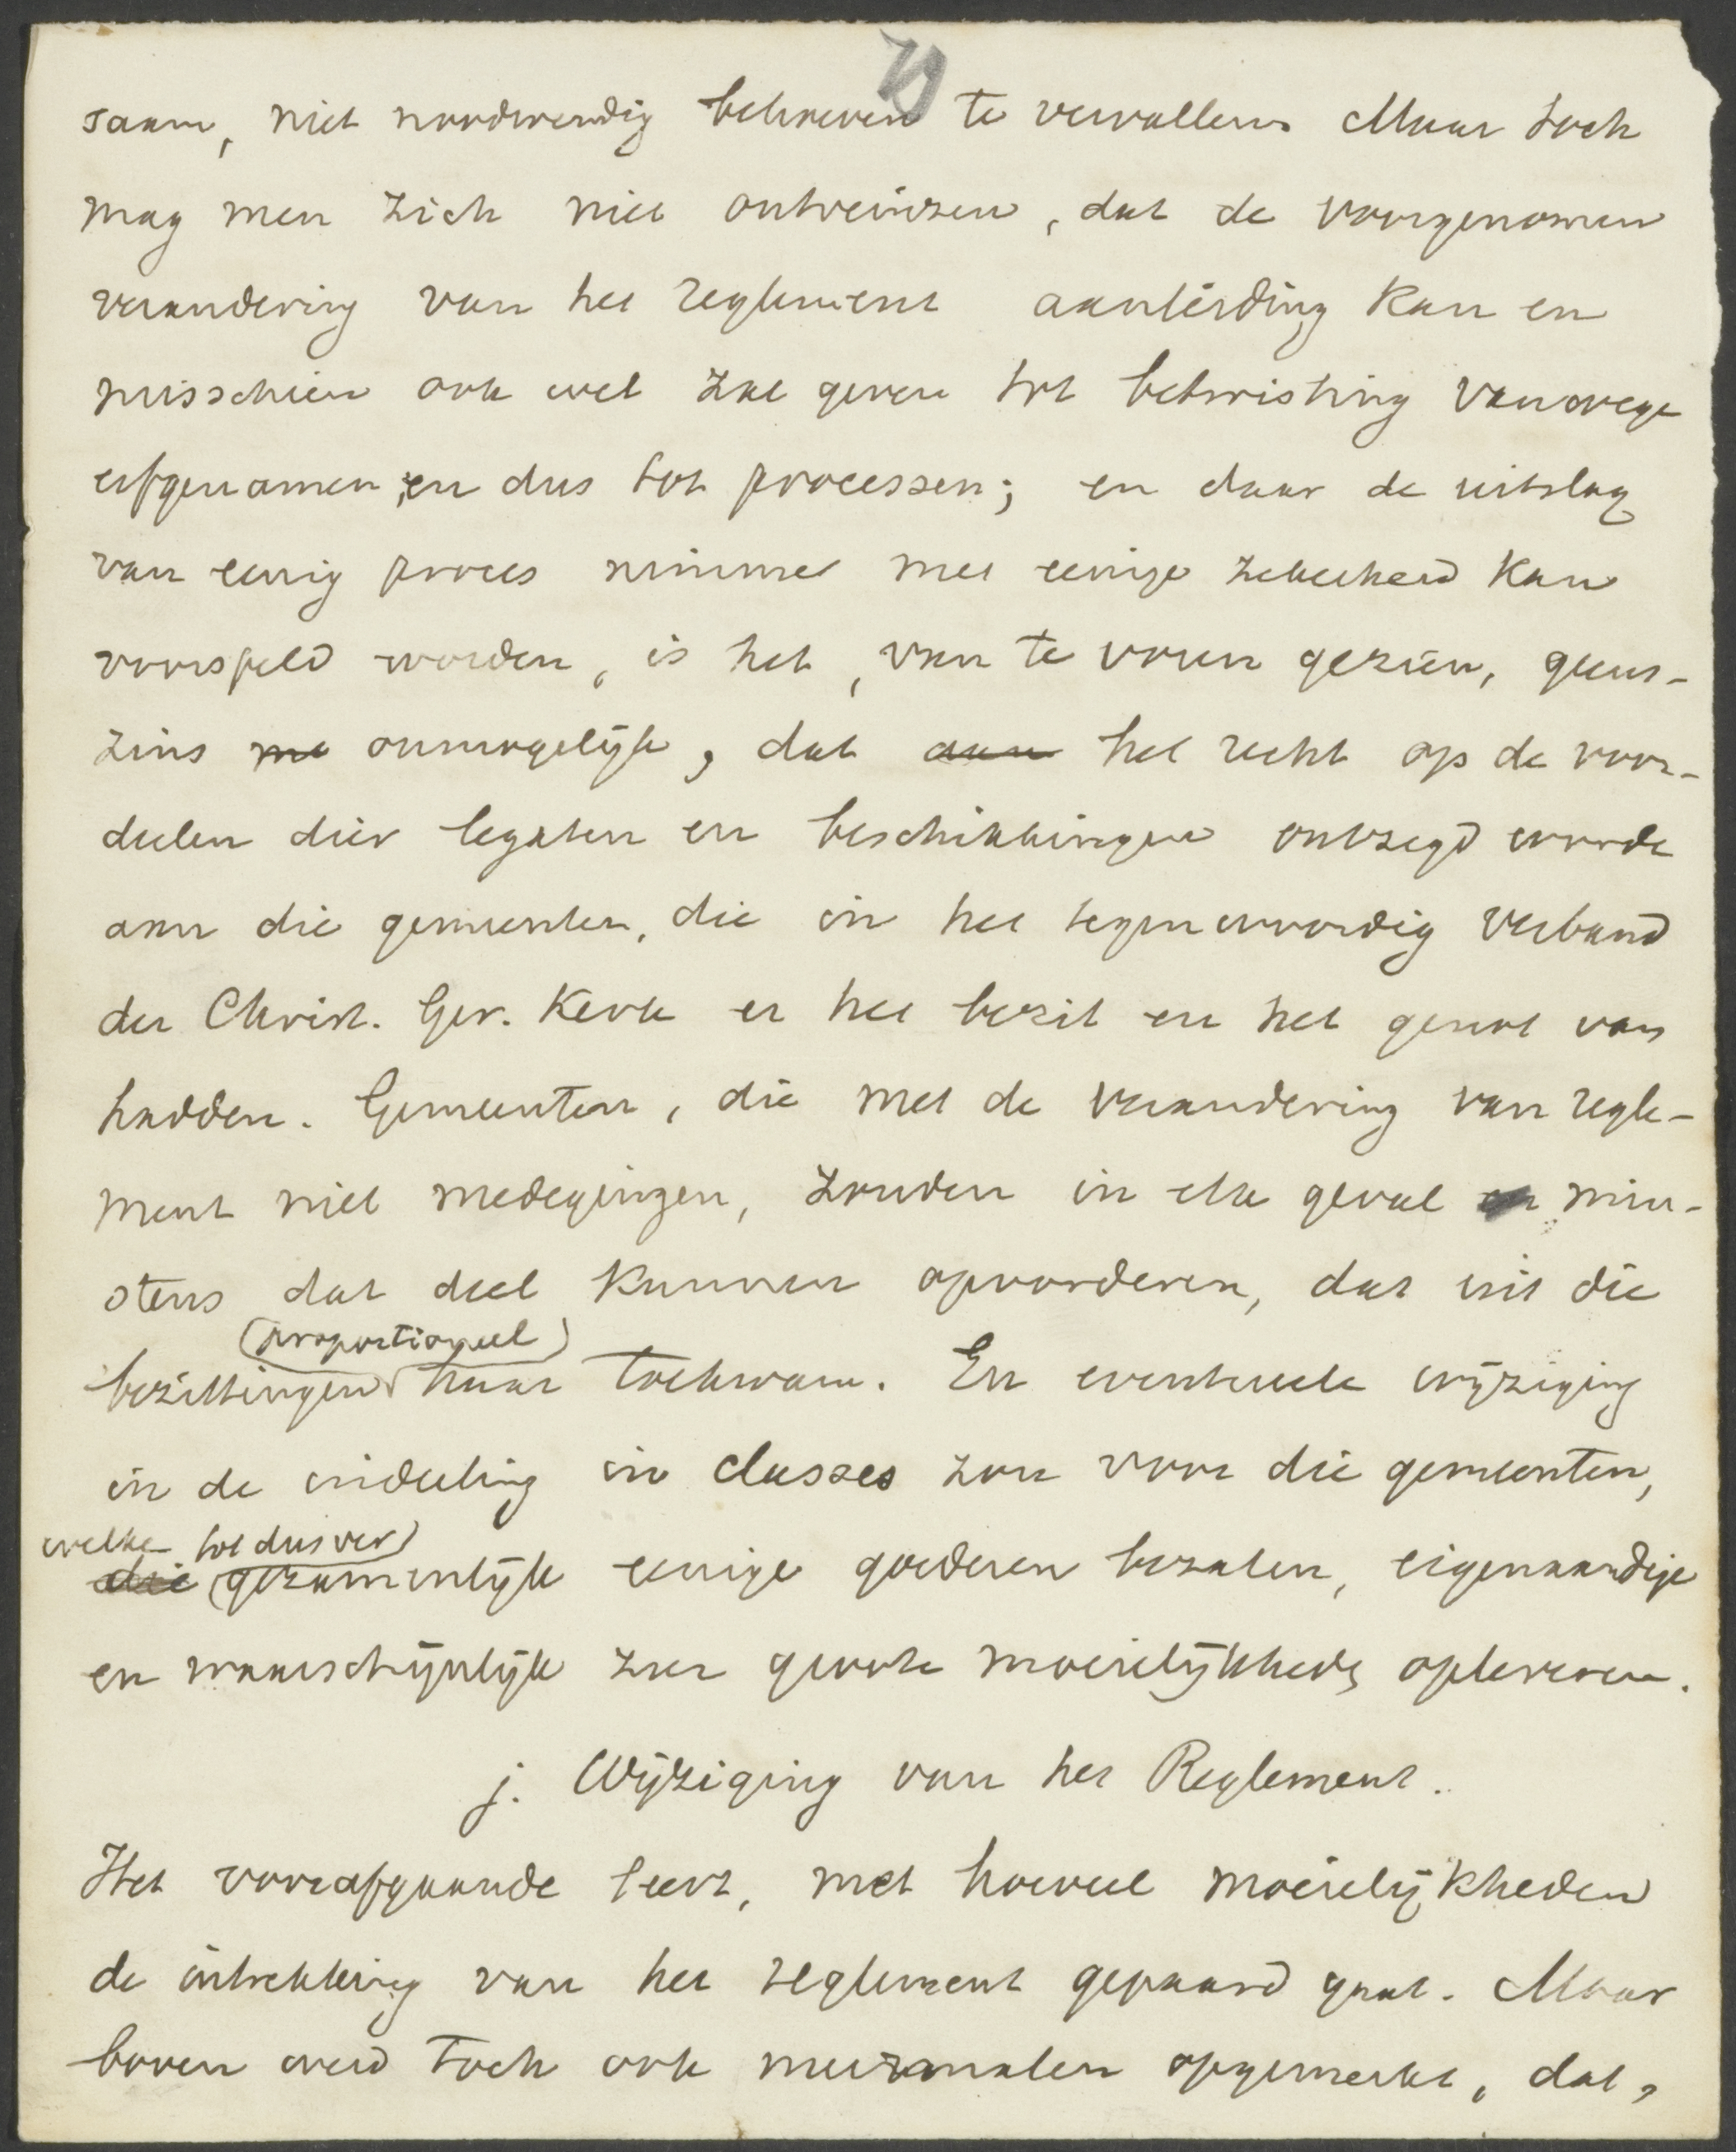 saam, niet noodwendig behoeven te vervallen. Maar toch
mag men zich niet ontveinzen, dat de voorgenomen
verandering van het reglement aanleiding kan en
misschien ook wel zal geven tot betwisting vanwege
erfgenamen, en dus tot processen; en daar de uitslag
van eenig proces nimmer met eenige zekerheid kan
voorspeld worden, is het, van te voren gezien, geens-
zins onmogelijk, dat aan het recht op de voor-
deelen dier legaten en beschikkingen ontzegd worde
aan die gemeenten, die in het tegenwoordig verband
der Christ. Ger. Kerk er het bezit en het genot van
hadden. Gemeenten, die met de verandering van regle-
ment niet medegingen, zouden in elk geval min-
stens dat deel kunnen opvorderen, dat uit die
(proportioneel)
bezittingen haar toekwam. En eventueele wijziging
in de indeeling in classes zou voor die gemeenten,
welke tot dusver
die gezamenlijk eenige goederen bezaten, eigenaardige
en waarschijnlijk zeer groote moeielijkheden opleveren.
j. Wijziging van het Reglement.
Het voorafgaande leert, met hoeveel moeielijkheden
de intrekking van het reglement gepaard gaat. Maar
boven werd toch ook meermalen opgemerkt, dat,